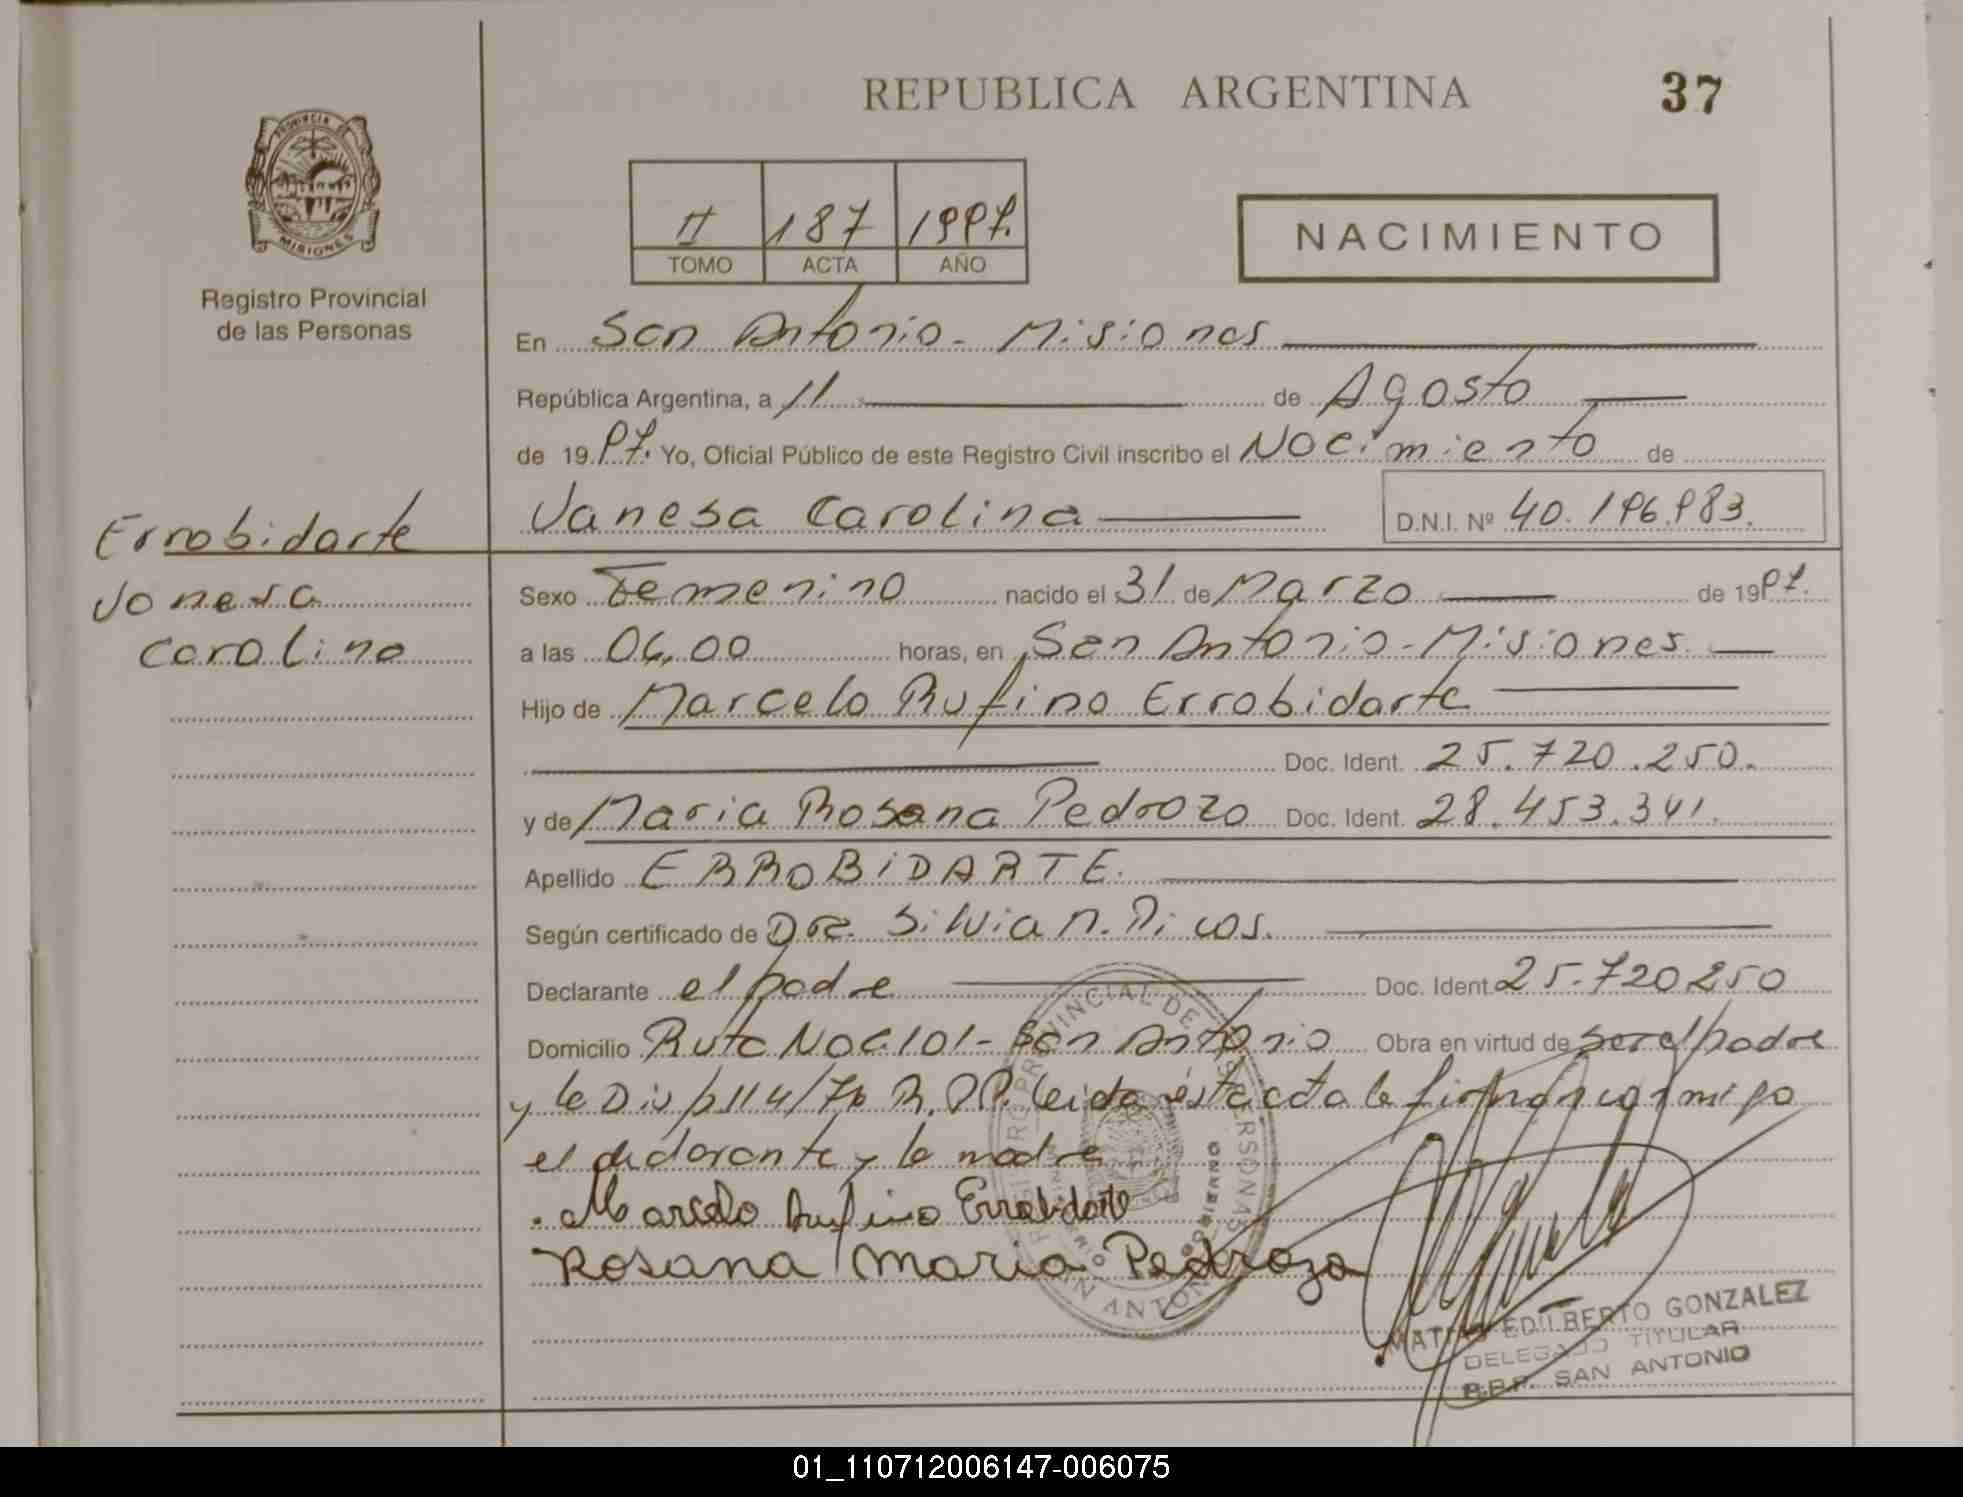 REPUBLICA ARGENTINA
37
PROVINCIA DE
MISIONES
Registro Provincial
de las Personas
II 187 1997.
TOMO ACTA AÑO
NACIMIENTO
En San Antonio - Misiones
República Argentina, a 11 de Agosto
de 1997. Yo, Oficial Público de este Registro Civil inscribo el Nacimiento de
Vanesa Carolina D.N.I. Nº 40.196.983.
Errobidarte
Vanesa
Carolina
Sexo Femenino nacido el 31 de Marzo de 1997.
a las 06,00 horas, en San Antonio - Misiones
Hijo de Marcelo Rufino Errobidarte
Doc. Ident. 25.720.250.
y de Maria Rosana Pedrozo Doc. Ident. 28.453.341.
Apellido ERROBIDARTE.
Según certificado de Dra. Silvia N.
Declarante el padre Doc. Ident. 25.720250
Domicilio Ruta Nac 101 - San Antonio Obra en virtud de ser el padre
y la Disp 114/76 R.P.P. leida ésta acta la firman conmigo
el declarante y la madre
Marcelo Rufino Errobidarte
Rosana Maria Pedrozo
EDILBERTO GONZALEZ
DELEGADO TITULAR
R.P.P. SAN ANTONIO
01_110712006147-006075